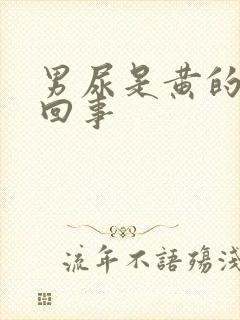 男尿是黄的
回事
流年不語殤淺